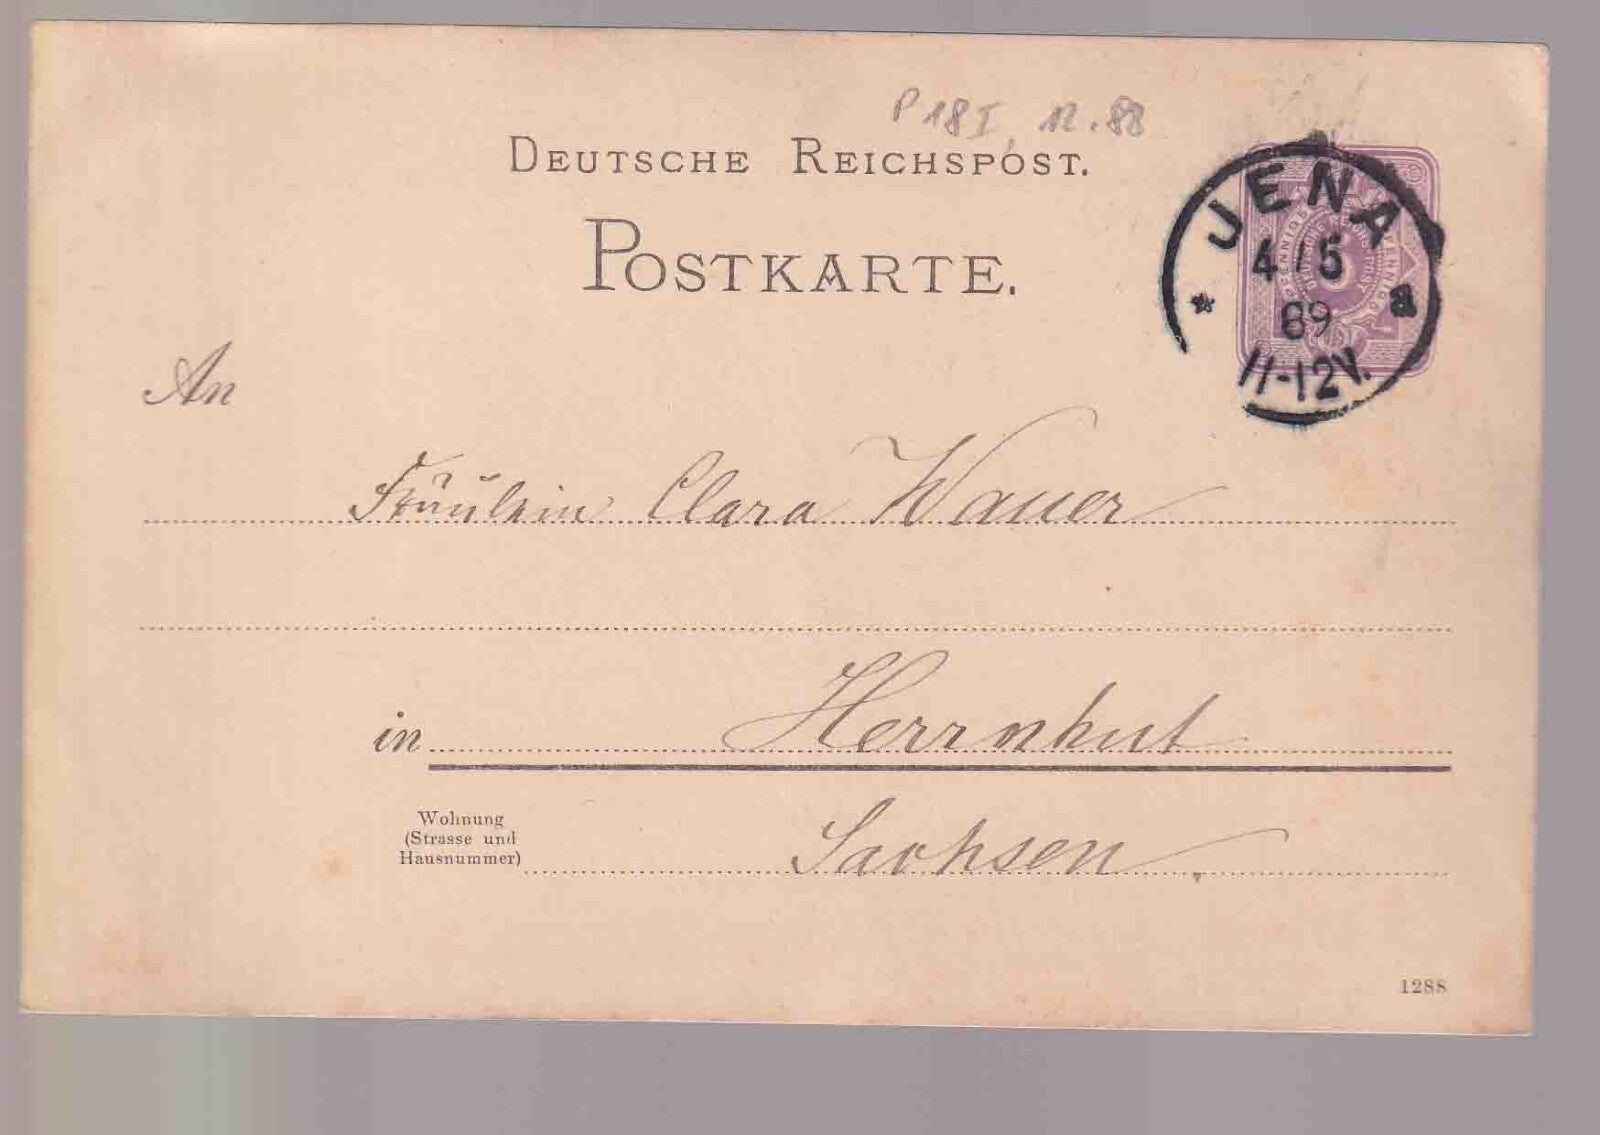 P 18 I 12.88
DEUTSCHE REICHSPOST.
POSTKARTE.
JENA
4/5
89
11-12V.
* a
An
Fräulein Clara Wauer
in Herrnhut
Wohnung
(Strasse und
Hausnummer)
Sachsen
1288